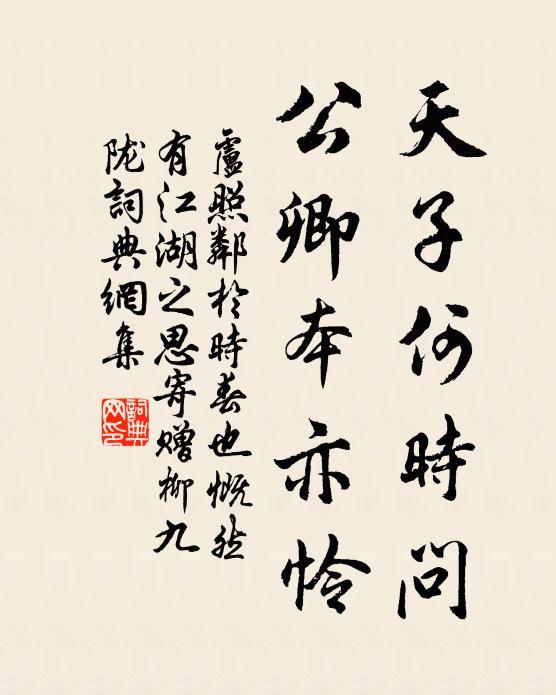 天子何時問
公卿本亦憐
盧照鄰於時春也慨然
有江湖之思寄贈柳九
陇詞典網集
詞典網印